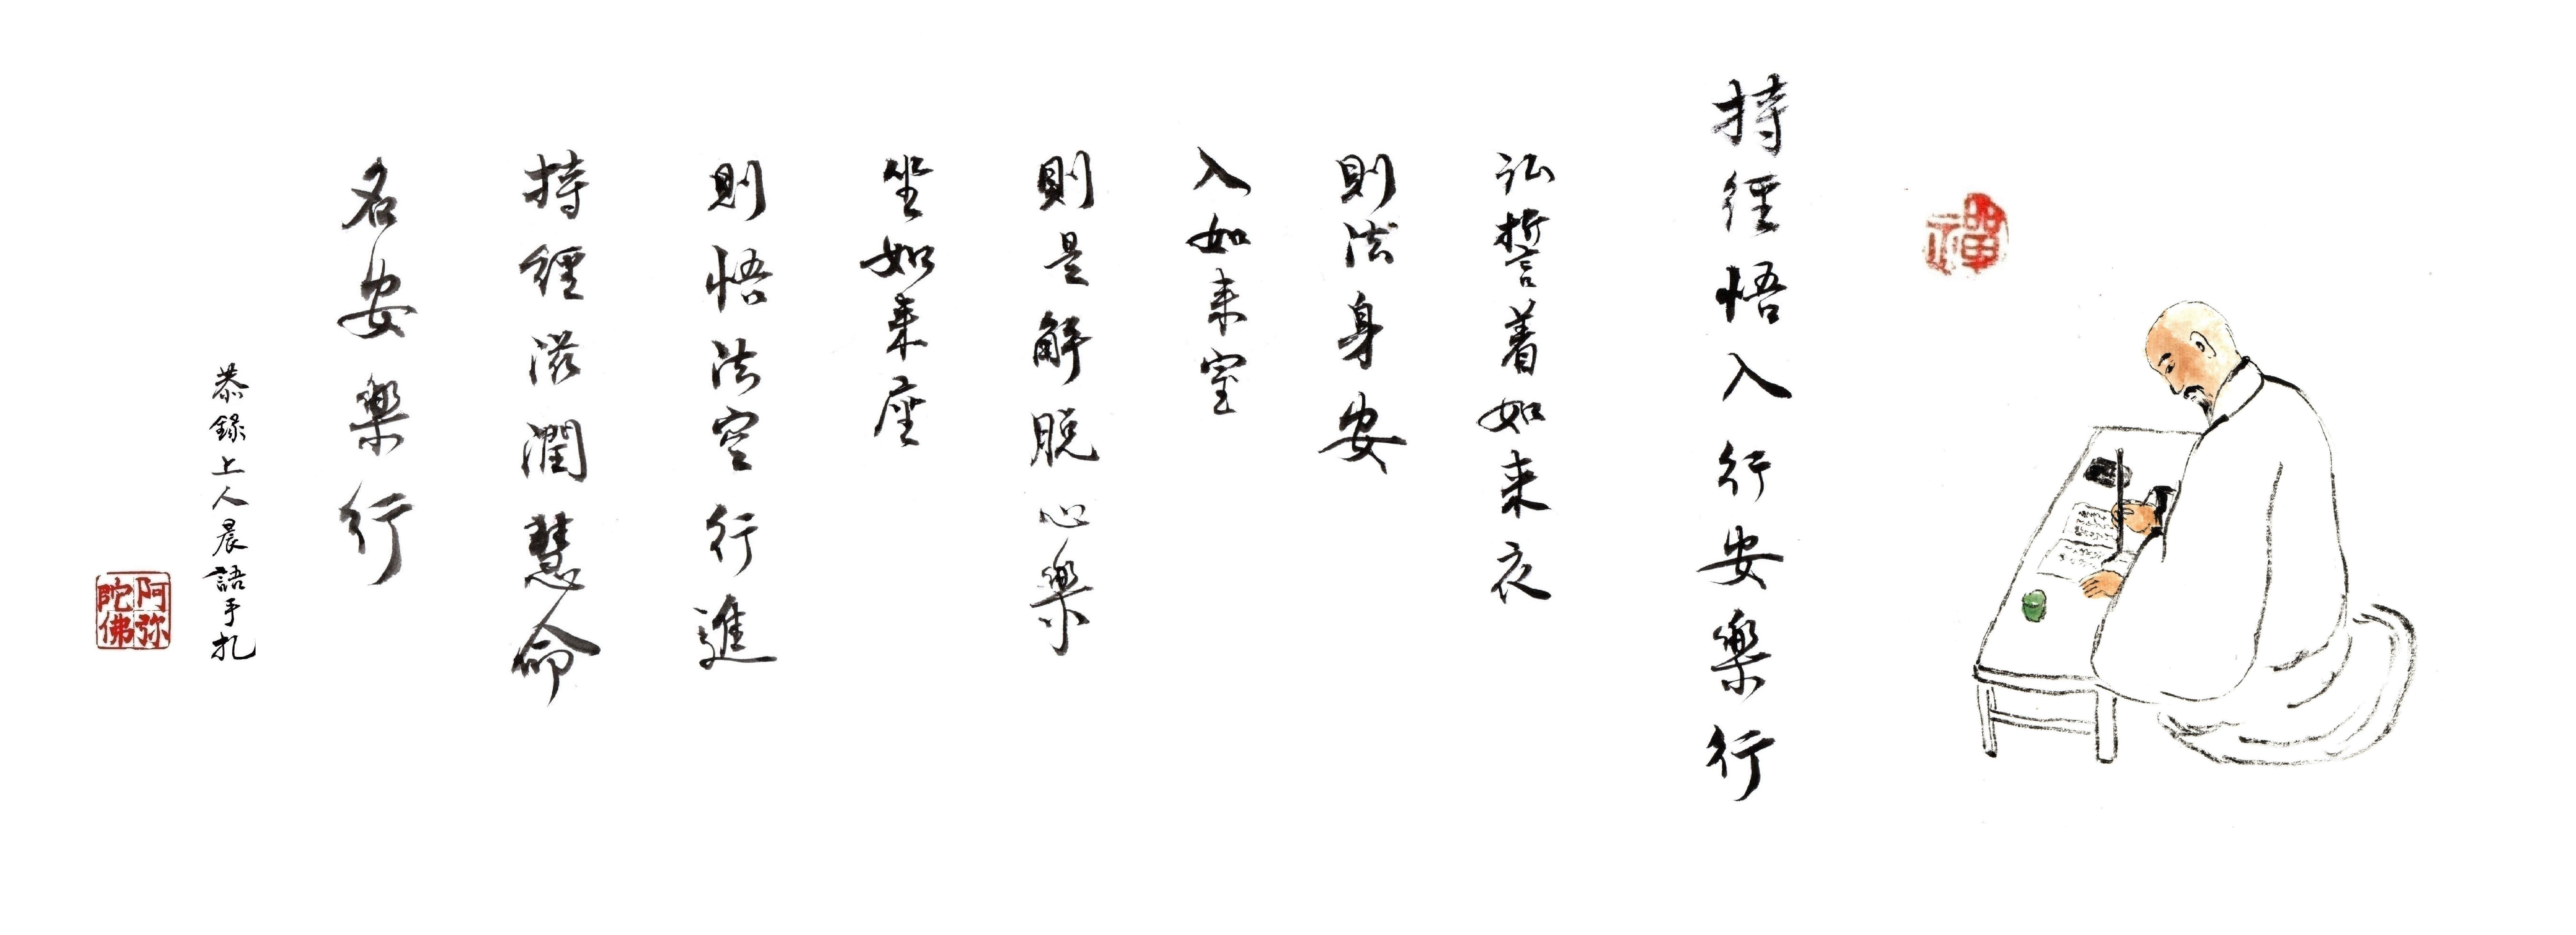 禪
持經悟入行安樂行
弘誓着如来衣
則法身安
入如来室
則是解脱心樂
坐如来座
則悟法空行進
持經滋潤慧命
名安樂行
恭錄上人晨語手札
阿弥陀佛